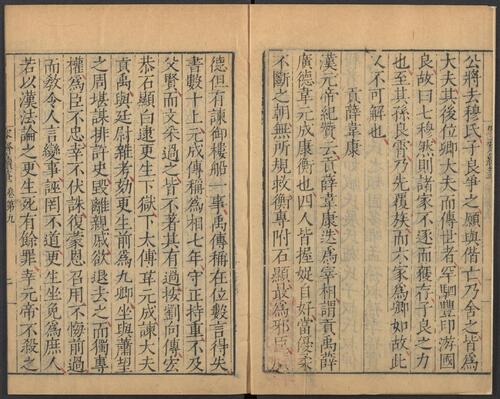 公將去穆氏子良爭之願與偕亡乃舍之皆為
大夫其後位卿大夫而傳世者罕駟豐印游國
良故曰七穆然則諸家不逐而獲存子良之力
也至其孫良霄乃先覆族而六家為卿如故此
又不可解也
貢薛韋康
漢元帝紀贊云貢薛韋康迭為宰相謂貢禹薛
廣德韋元成康衡也四人皆握娖自好當優柔
不斷之朝無所規救衡專附石顯最為邪臣
德但有諫御樓船一事禹傳稱在位數言得失
書數十上元成傳稱為相七年守正持重不及
父賢而文采過之皆不著其有過按劉向傳宏
恭石顯白逮更生下獄下太傅韋元成諫大夫
貢禹與廷尉雜考劾更生前為九卿坐與蕭望
之周堪謀排許史毀離親戚欲退去之而獨專
權為臣不忠幸不伏誅復蒙恩召用不悔前過
而教令人言變事誣罔不道更生坐免為庶人
若以漢法論之更生死有餘罪幸元帝不殺之